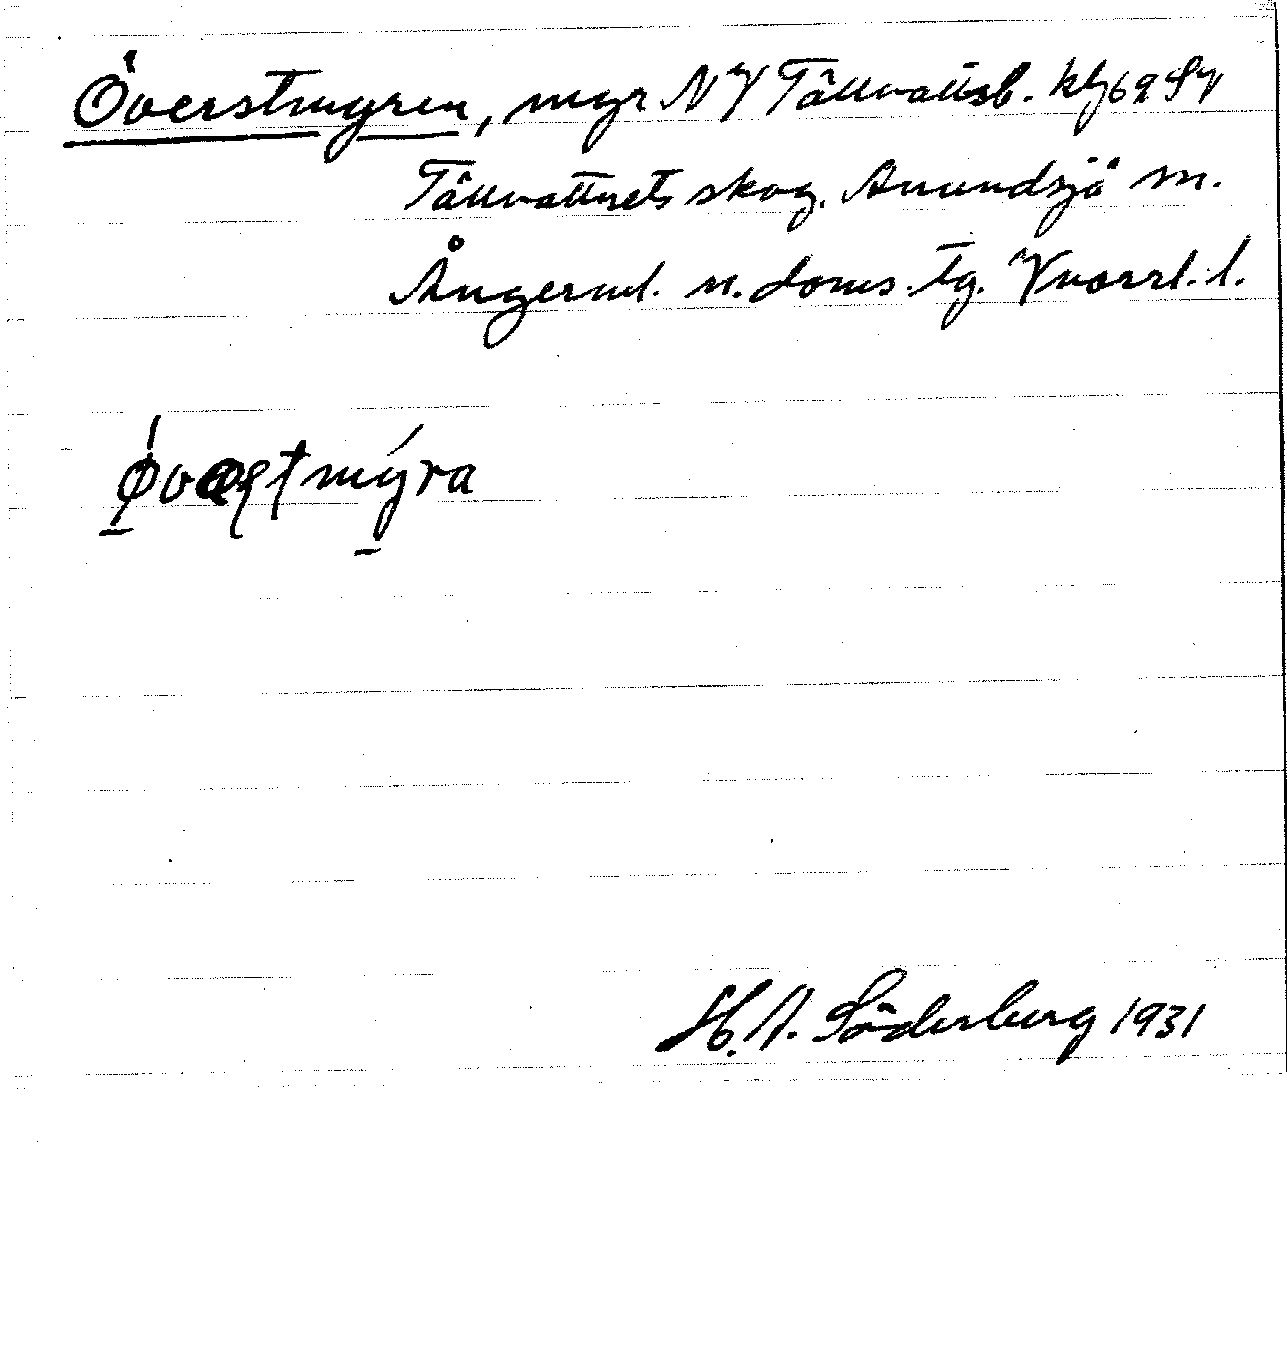 Överstmyren, myr NV Tällvattsb. kbl 69 SV
Tällvattnets skog, Anundsjö sn.
Ångerml. n. doms. tg. Vnorrl. l.
H. A. Söderberg 1931